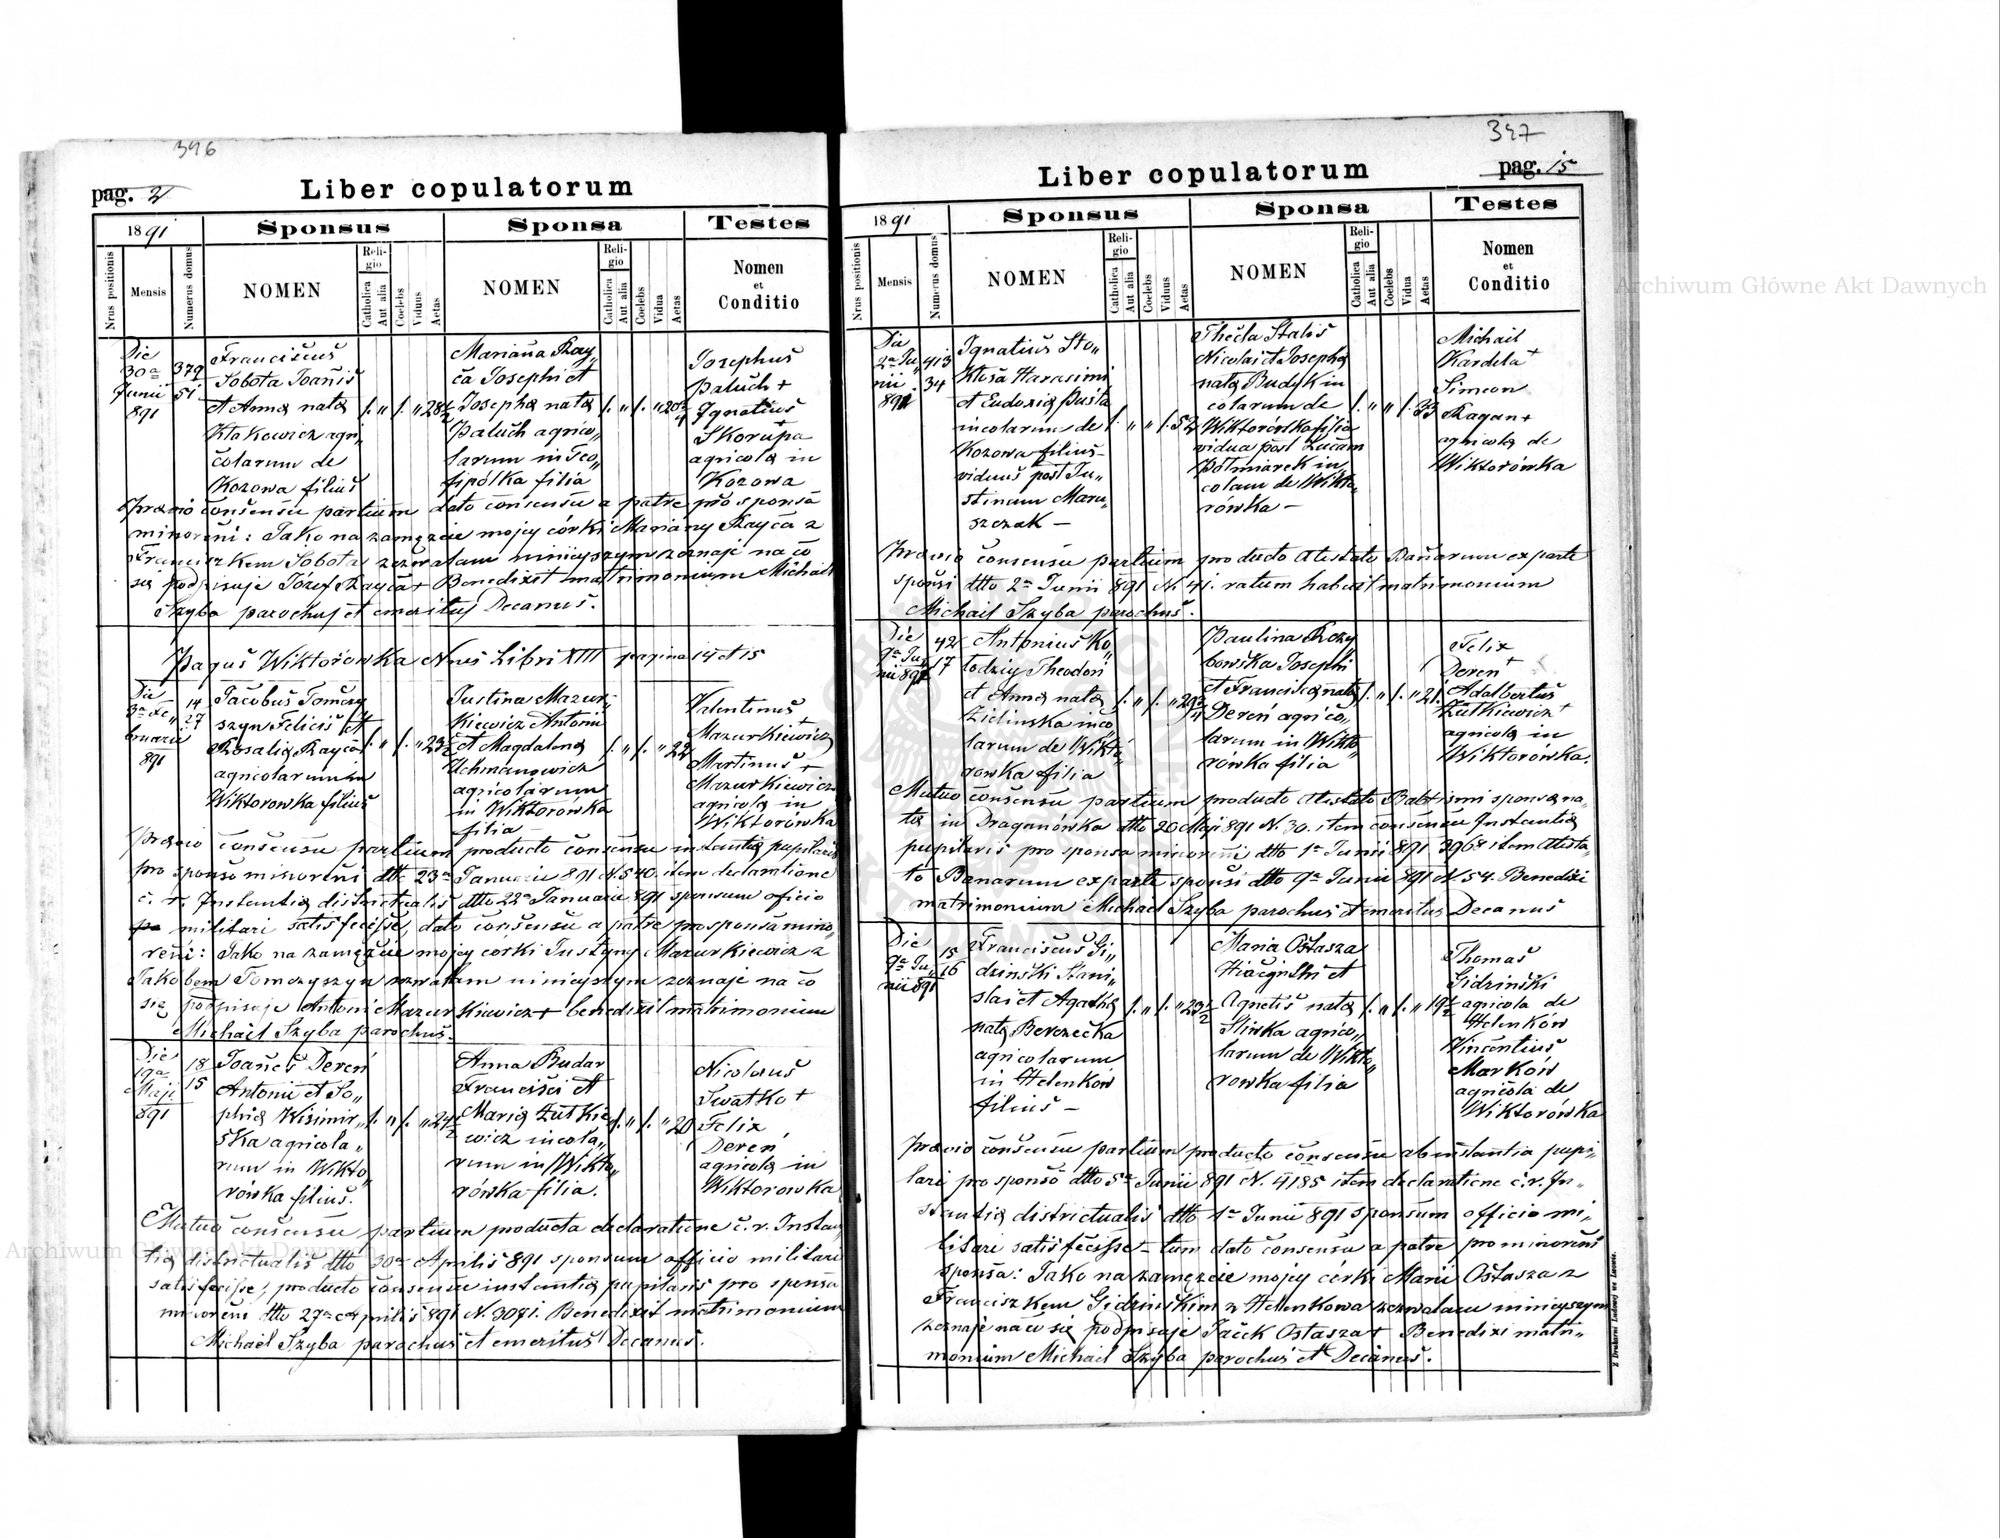 396
pag. 2
Liber copulatorum
1891
Sponsus
Sponsa
Testes
Nrus positionis
Mensis
Numerus domus
NOMEN
Religio
Catholica
Aut alia
Coelebs
Viduus
Aetas
NOMEN
Religio
Catholica
Aut alia
Coelebs
Vidua
Aetas
Nomen
et
Conditio
Die
30a
Junii
891
379
51
Franciscus
Sobota Joanis
et Anna nata
Kłakowicz agri
colarum de
Kozowa filius
28½
Mariana Ray„
ca Josephi et
Josepha nata
Paluch agrico„
larum in Teo„
fipolka filia
20¾
Josephus
Paluch +
Ignatius
Skorupa +
agricola in
Kozowa
Praevio consensu partium dato consensu a patre pro sponsa
minoreni: Jako na zamęzcie mojej córki Mariany Rayca z
Franciszkem Sobota zezwalam niniejszym zeznaje na co
się podpisuje Józef Rayca + Benedixit matrimonium Michael
Szyba parochus et emeritus Decanus.
Pagus Wiktorowka Nrus Libri XIII pagina 14 et 15
Die
3a Fe„
bruarii
891
14
27
Jacobus Tomczy
szyn Felicis et
Rosalia Rayca
agricolarum in
Wiktorowka filius
23½
Justina Mazur„
kiewicz Antonii
et Magdalena
Uchmanowicz
agricolarum
in Wiktorowka
filia
22
Valentinus +
Mazurkiewicz
Martinus +
Mazurkiewicz
agricola in
Wiktorówka
Praevio consensu partium producto consensu instantia pupilaris
pro sponso minoreni dtto 23a Januarii 891 N. 540. item declaratione
c. r. Instantia districtualis dtto 22a Januarii 891 sponsum oficio
militari satisfecisse, dato consensu a patre pro sponsa mino„
reni: Jako na zamęzcie mojej corki Justyny Mazurkiewicz z
Jakobem Tomczyszyn zezwalam niniejszym zeznaje na co
się podpisuje Antoni Mazurkiewicz + benedixit matrimonium
Michael Szyba parochus.
Die
19a
Maji
891
18
15
Joanes Dereń
Antonii et So„
phia Wisznir„
ska agricola„
rum in Wikto„
rówka filius.
24½
Anna Budar
Francisci et
Maria Żutkie
wicz incola„
rum in Wikto„
rówka filia.
20
Nicolaus
Swatko +
Felix
Dereń
agricola in
Wiktorowka
Mutuo consensu partium producta declaratione c. r. Instan„
tia districtualis dtto 30a Aprilis 891 sponsum officio militari
satisfecisse, producto consensu instantia pupilaris pro sponsa
minoreni dtto 27a Aprilis 891 N. 3071. Benedixit matrimonium
Michael Szyba parochus et emeritus Decanus.
347
pag. 15
Liber copulatorum
1891
Sponsus
Sponsa
Testes
Nrus positionis
Mensis
Numerus domus
NOMEN
Religio
Catholica
Aut alia
Coelebs
Viduus
Aetas
NOMEN
Religio
Catholica
Aut alia
Coelebs
Vidua
Aetas
Nomen
et
Conditio
Die
2a Ju„
nii
891
413
34
Ignatius Sto„
kłosa Harasimi
et Eudoxia Pusta
incolarum de
Kozowa filius
viduus post Ju„
stinam Maru„
szczak —
52
Thecla Stalis
Nicolai et Josepha
nata Budyk in
colarum de
Wiktorówka filia
vidua post Lucam
Połmiarek in
colam de Wikto„
rówka —
33
Michail
Kardela +
Simeon
Ragan +
agricola de
Wiktorówka
Praevio consensu partium producto Atestato Banorum ex parte
sponsi dtto 2a Junii 891 N. 41. ratum habuit matrimonium
Michael Szyba parochus.
Die
9a Ju„
nii 891
42
17
Antonius Ko
łodziy Theodori
et Anna nata
Zielinska inco
larum de Wikto„
rowka filia
29¾
Paulina Rozy
bowska Josephi
et Francisca nata
Dereń agrico„
larum in Wikto„
rówka filia
21
Felix
Dereń +
Adalbertus
Żutkiewicz +
agricola in
Wiktorówka.
Mutuo consensu partium producto Atestato Babtismi sponsa na„
ta in Draganówka dtto 20 Maji 891 N. 30. item consensu Instantia
pupilaris pro sponsa minoreni dtto 1a Junii 891 3968 item Atesta„
to Banarum ex parte sponsi dtto 9a Junii 891 N 54. Benedixi
matrimonium Michael Szyba parochus et emeritus Decanus
Die
9a Ju„
nii 891
15
16
Franciscus Gi„
dzinski Stani„
slai et Agatha
nata Berezecka
agricolarum
in Helenków
filius —
23½
Maria Ostasza
Hiacynthi et
Agnetis nata
Sliwka agrico„
larum de Wikto„
rowka filia
19½
Thomas
Gidzinski
agricola de
Helenków
Vincentius
Marków
agricola de
Wiktorówka
Praevio consensu partium producto consensu ab instantia pupi„
lari pro sponso dtto 5a Junii 891 N. 4185 item declaratione c. r. In„
stantia districtualis dtto 1a Junii 891 sponsum officio mi„
litari satisfecisse — tum dato consensu a patre pro minoreni
sponsa: Jako na zamęzcie mojej córki Marii Ostasza z
Franciszkem Gidzinskim z Helenkowa zezwalam niniejszym
zeznaje na co się podpisuje Jacek Ostasza + Benedixi matri„
monium Michael Szyba parochus et Decanus.
Z Drukarni Ludowej we Lwowie.
Archiwum Główne Akt Dawnych
Archiwum Główne Akt Dawnych